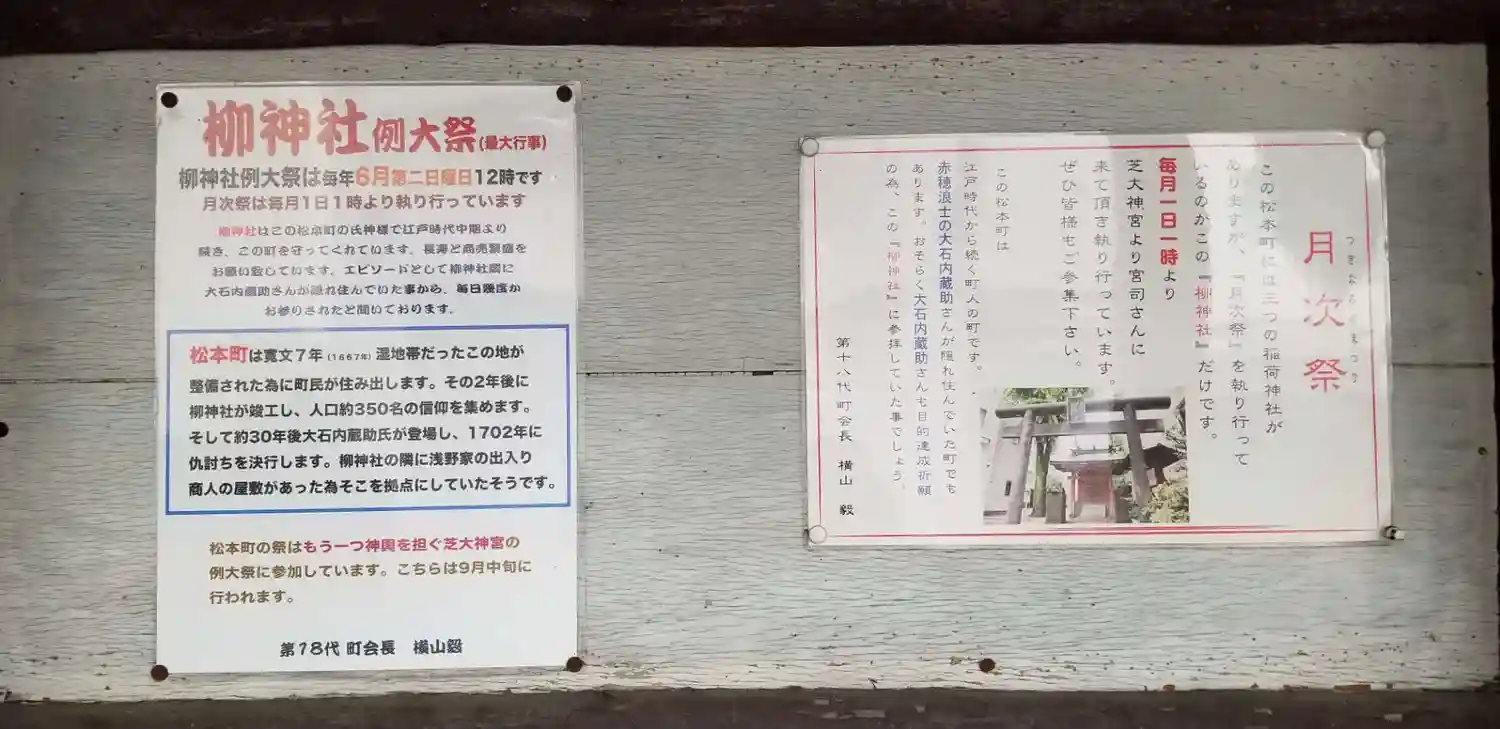 柳神社例大祭(最大行事)
柳神社例大祭は毎年6月第二日曜日12時です
月次祭は毎月1日1時より執り行っています
柳神社はこの松本町の氏神様で江戸時代中期より
続き、この町を守ってくれています。長寿と商売繁盛を
お願い致しています。エピソードとして柳神社隣に
大石内蔵助さんが隠れ住んでいた事から、毎日幾度か
お参りされたと聞いております。
松本町は寛文7年(1667年)湿地帯だったこの地が
整備された為に町民が住み出します。その2年後に
柳神社が竣工し、人口約350名の信仰を集めます。
そして約30年後大石内蔵助氏が登場し、1702年に
仇討ちを決行します。柳神社の隣に浅野家の出入り
商人の屋敷があった為そこを拠点にしていたそうです。
松本町の祭はもう一つ神輿を担ぐ芝大神宮の
例大祭に参加しています。こちらは9月中旬に
行われます。
第18代 町会長 横山毅
月次祭
つきなみのまつり
この松本町には三つの稲荷神社が
ありますが、『月次祭』を執り行って
いるのがこの『柳神社』だけです。
毎月一日一時より
芝大神宮より宮司さんに
来て頂き執り行っています。
ぜひ皆様もご参集下さい。
この松本町は
江戸時代から続く町人の町です。
赤穂浪士の大石内蔵助さんが隠れ住んでいた町でも
あります。おそらく大石内蔵助さんも目的達成祈願
の為、この『柳神社』に参拝していた事でしょう。
第十八代 町会長 横山 毅